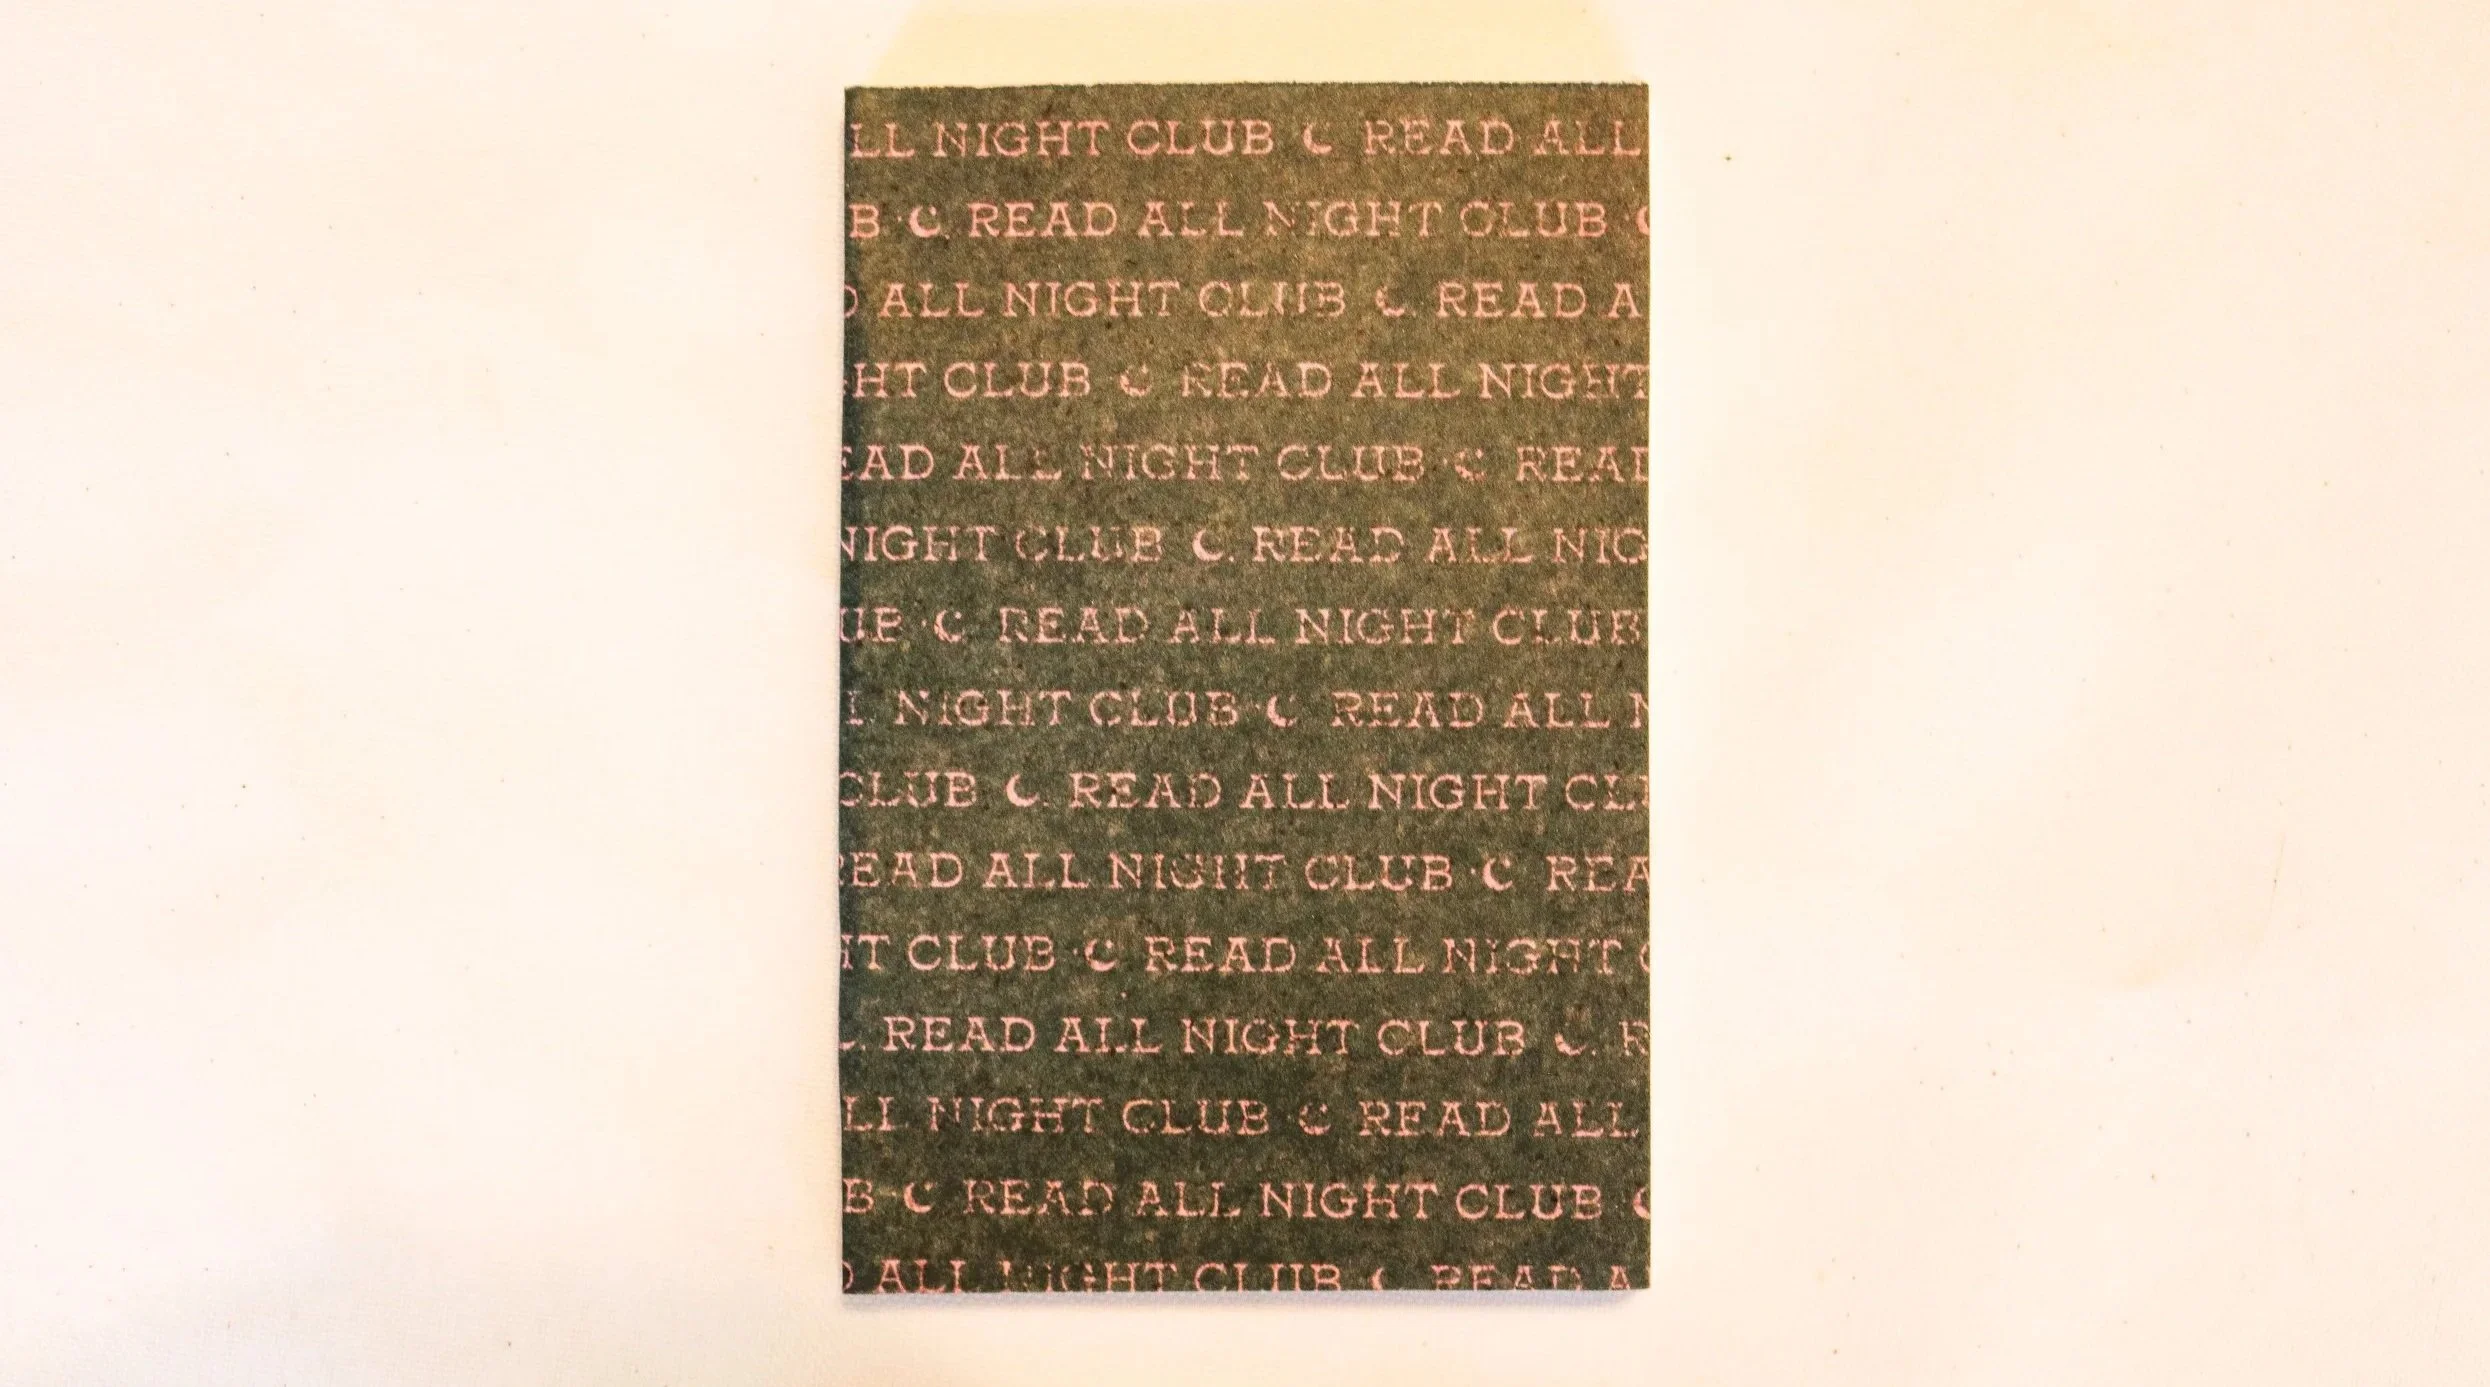 LL NIGHT CLUB READ ALL
B READ ALL NIGHT CLUB
D ALL NIGHT CLUB READ A
HT CLUB READ ALL NIGHT
EAD ALL NIGHT CLUB READ
NIGHT CLUB READ ALL NIG
UB READ ALL NIGHT CLUB
L NIGHT CLUB READ ALL N
CLUB READ ALL NIGHT CLU
READ ALL NIGHT CLUB REA
HT CLUB READ ALL NIGHT C
READ ALL NIGHT CLUB R
LL NIGHT CLUB READ ALL
B READ ALL NIGHT CLUB
D ALL NIGHT CLUB READ A